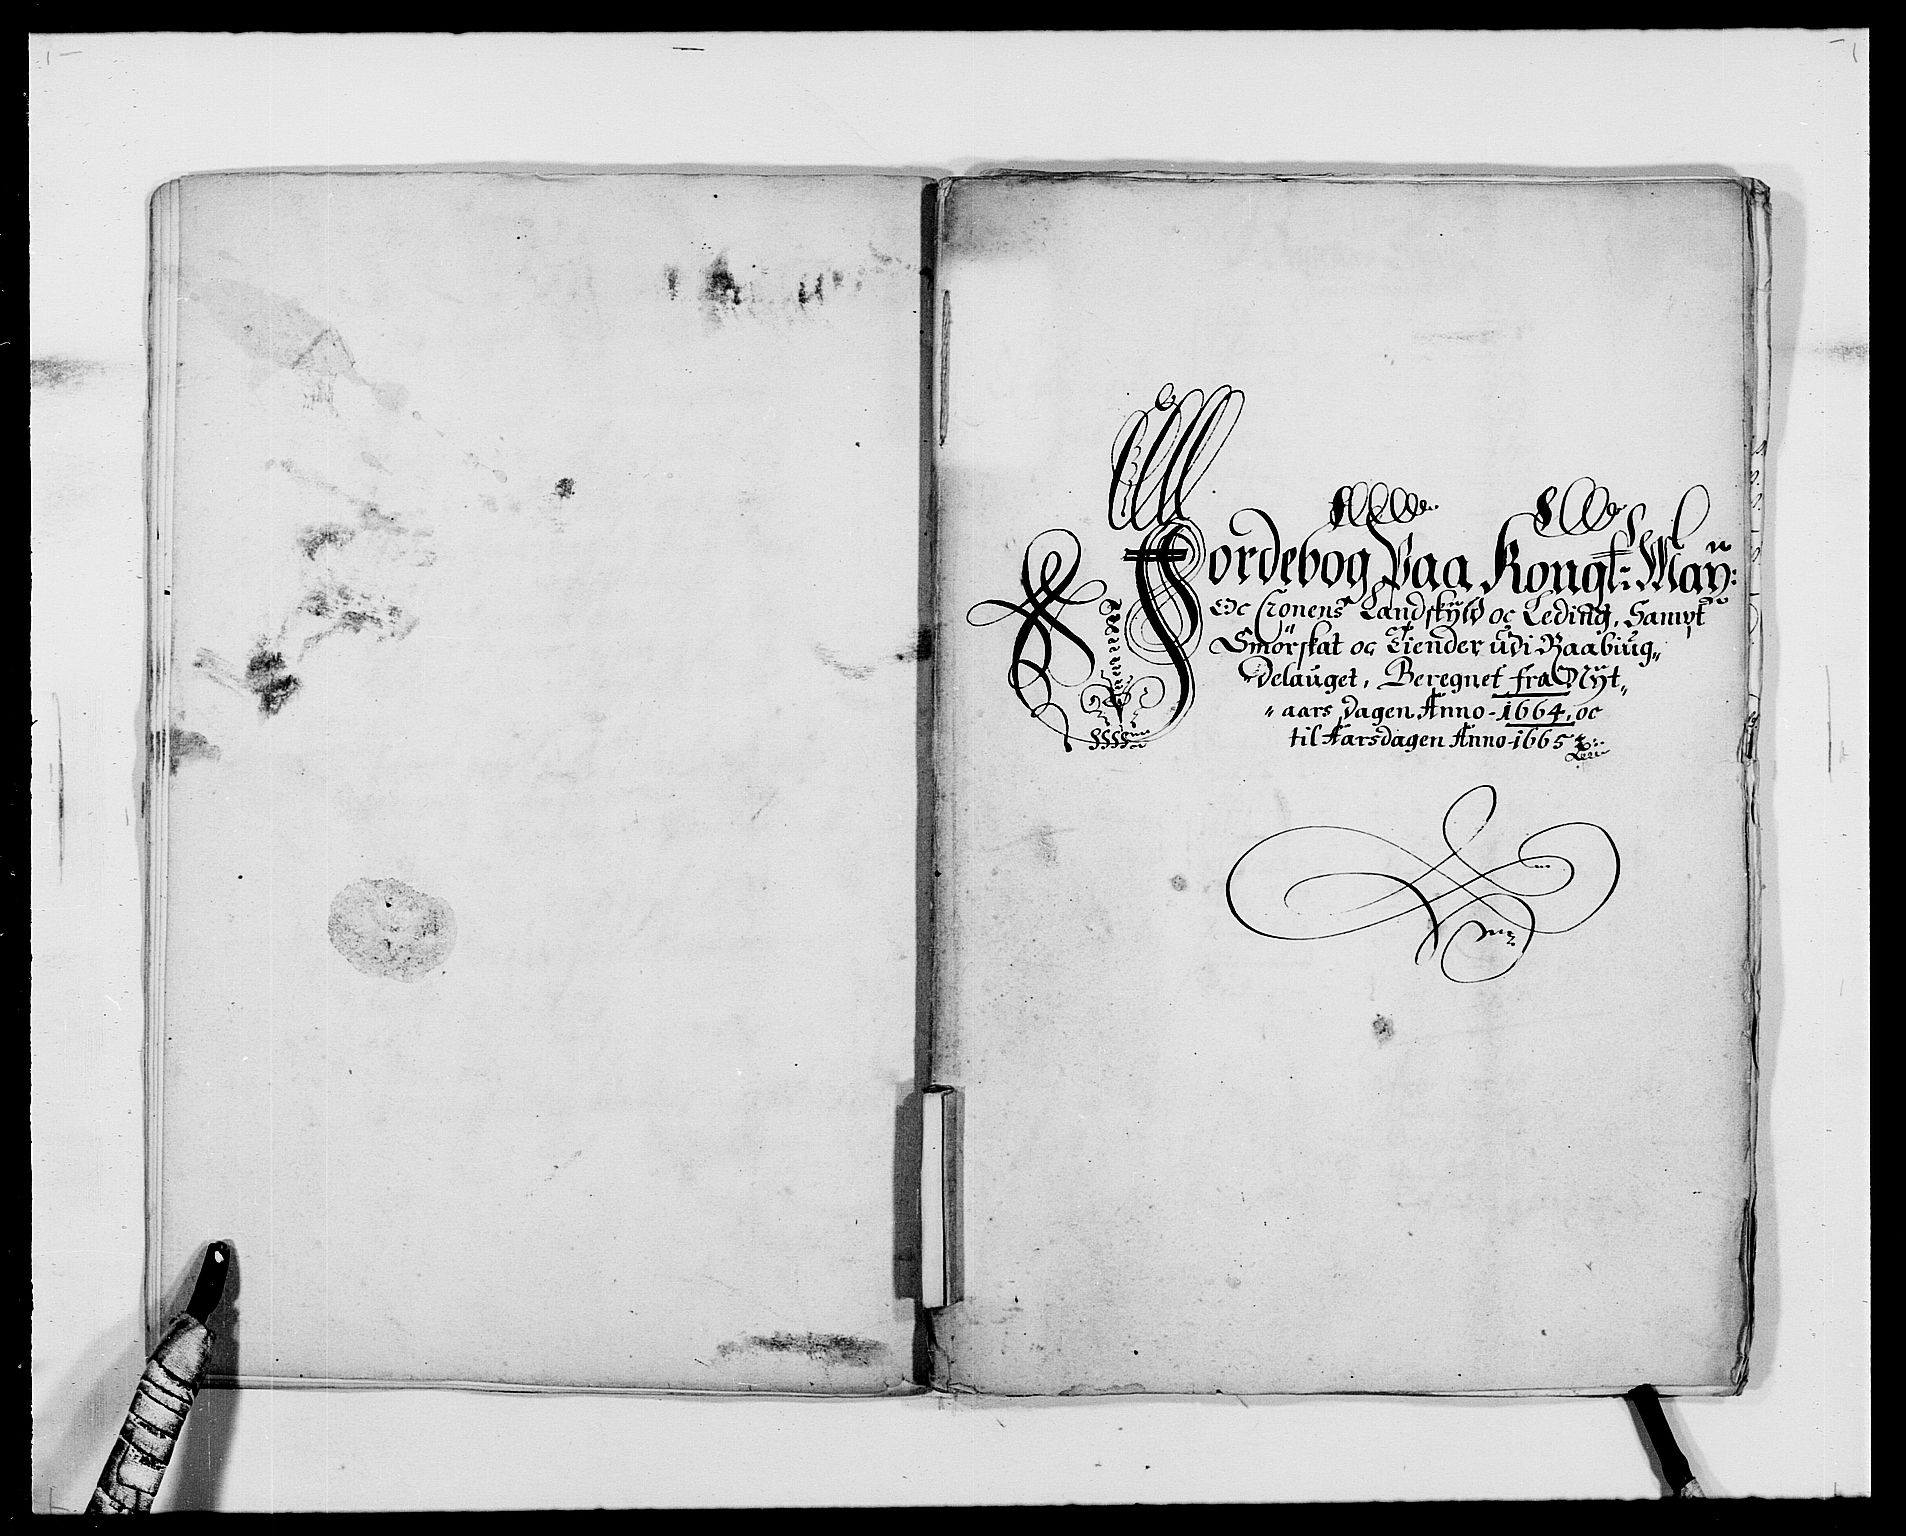 Jordebog Paa Kongl: May:
oc Cronens Landskÿld oc Leding, Sampt
Smörskat oc Tiender udi Raabiug„
delauget, Beregnet fra Nÿt„
„aars dagen Anno-1664, oc
til Aarsdagen Anno-1665